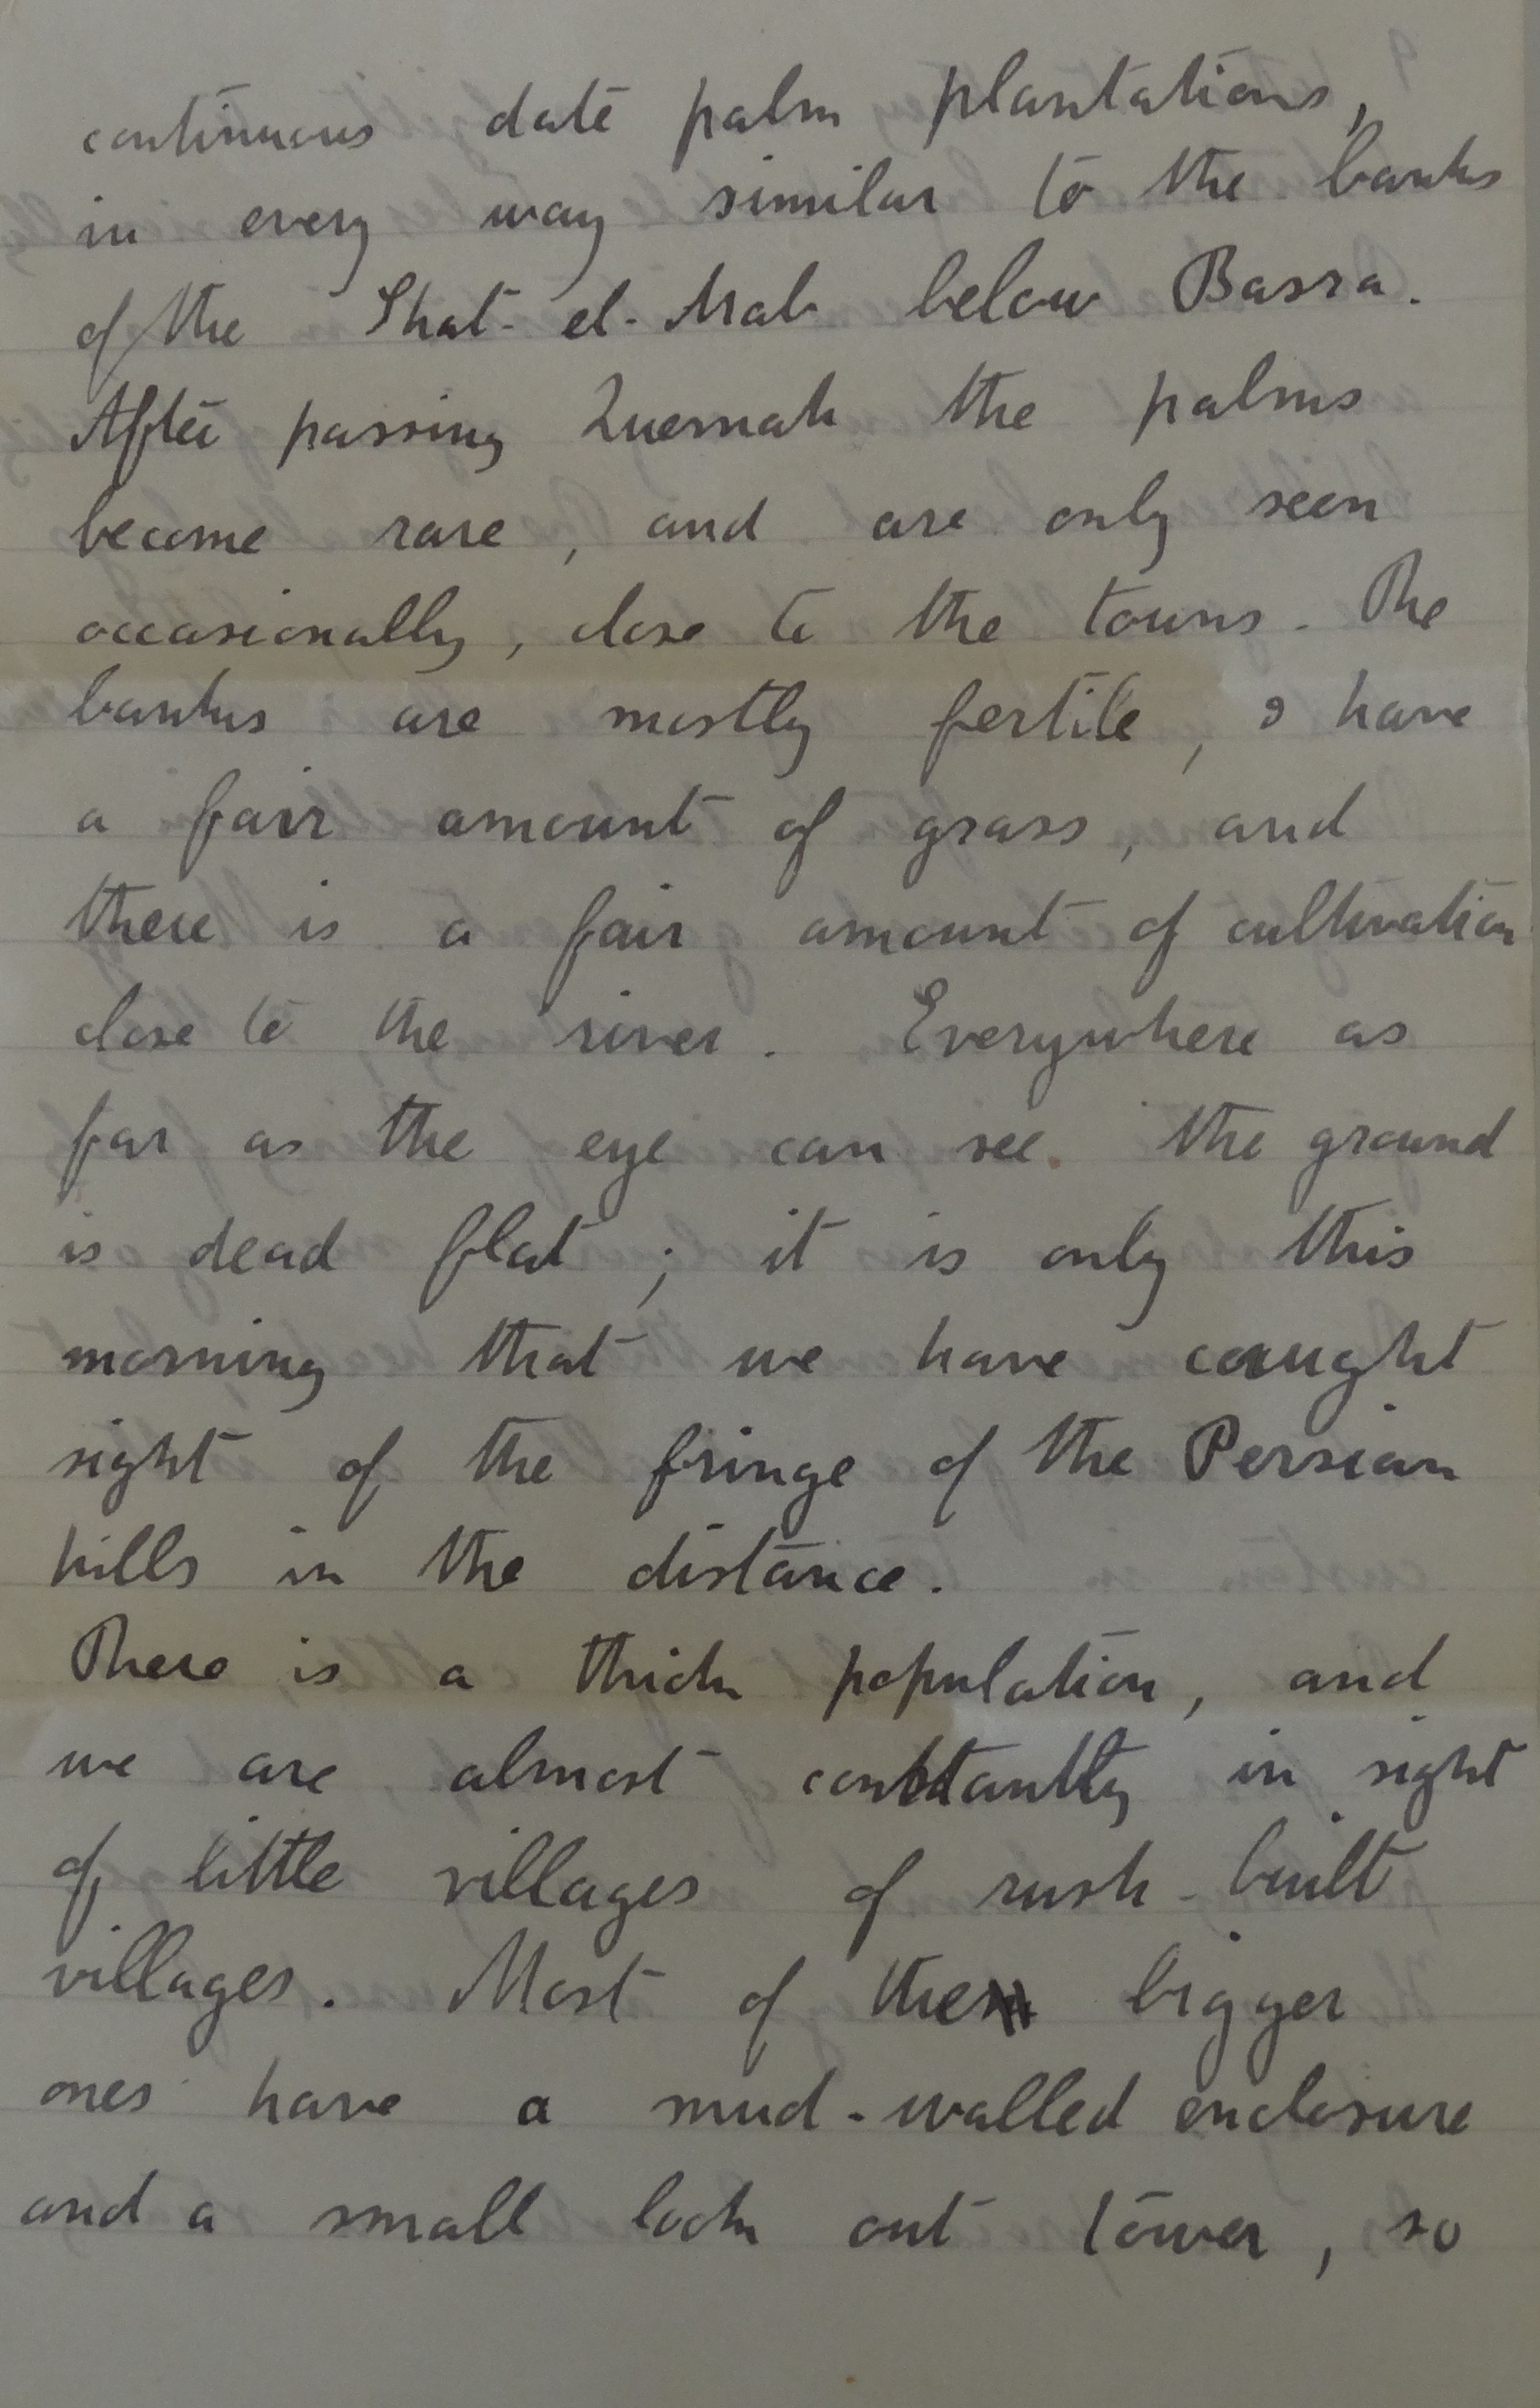 continuous date palm plantations,
in every way similar to the banks
of the Shat-el-Arab below Basra.
After passing Quernah the palms
become rare, and are only seen
occasionally, close to the towns. The
banks are mostly fertile, & have
a fair amount of grass, and
there is a fair amount of cultivation
close to the river. Everywhere as
far as the eye can see the ground
is dead flat; it is only this
morning that we have caught
sight of the fringe of the Persian
hills in the distance.
There is a thick population, and
we are almost constantly in sight
of little villages of rush-built
villages. Most of the bigger
ones have a mud-walled enclosure
and a small look out tower, so